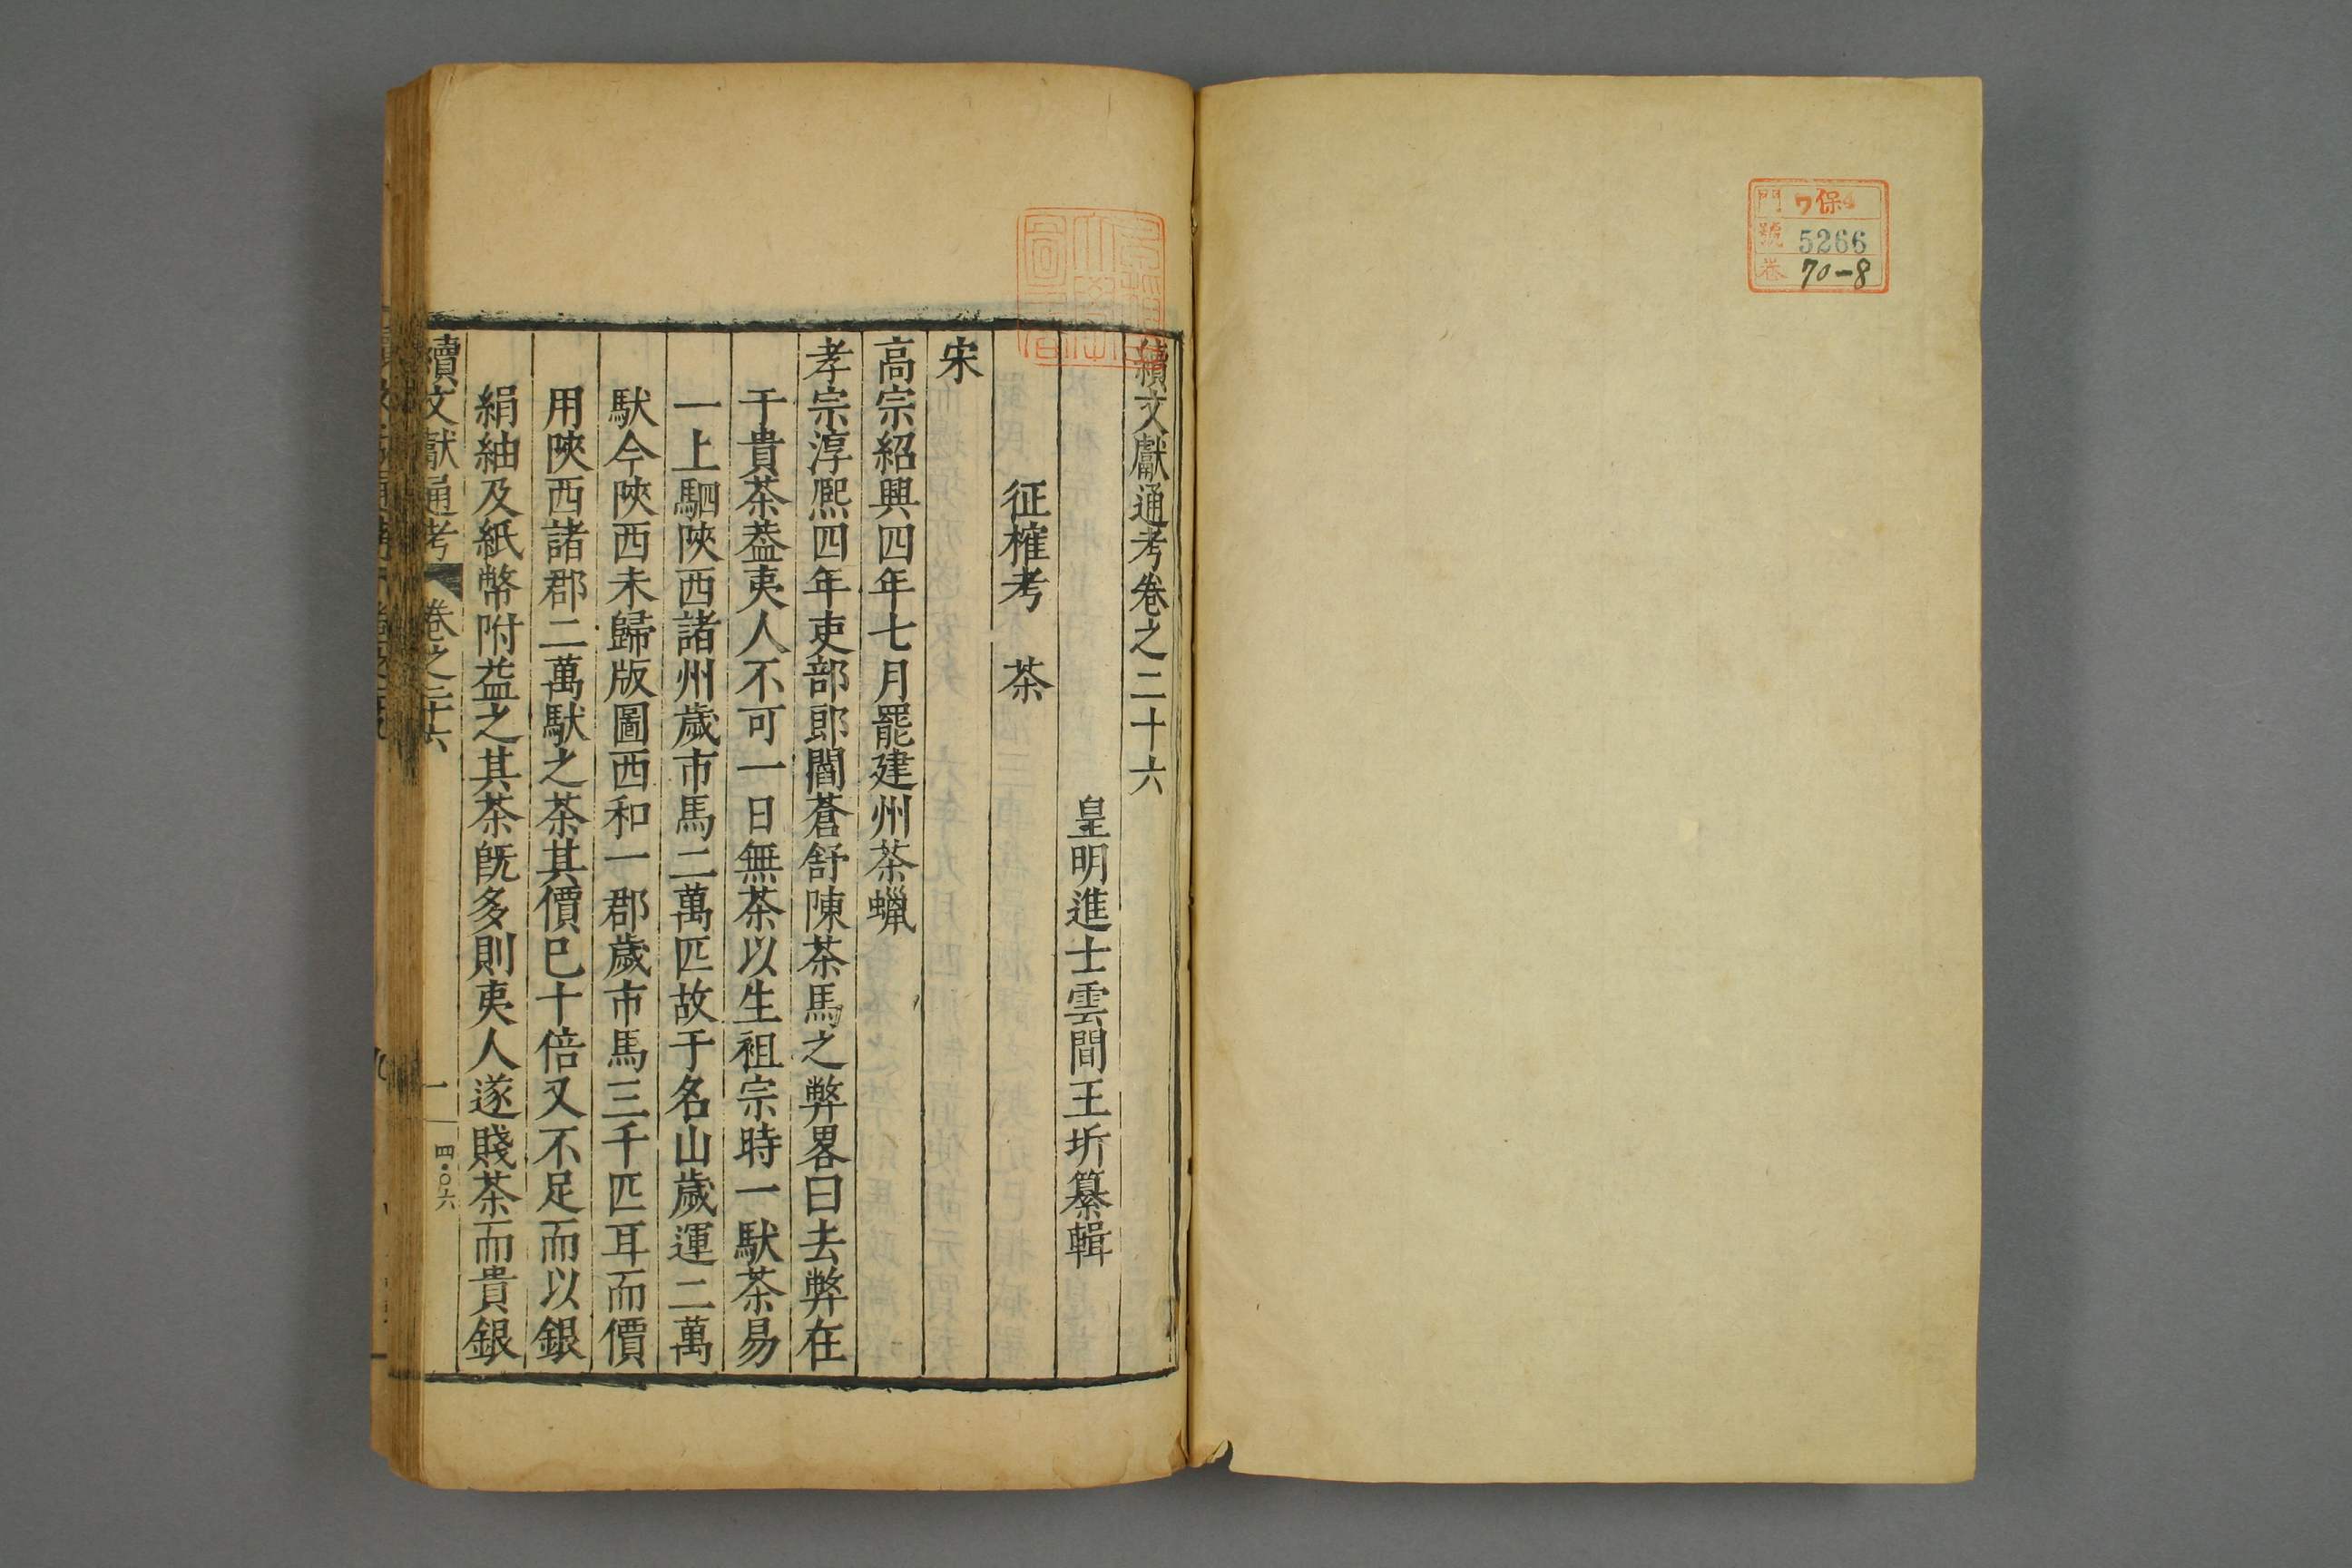 門 ワ保4
號 5266
巻 70-8
續文獻通考卷之二十六
皇明進士雲間王圻纂輯
征榷考 茶
宋
高宗紹興四年七月罷建州茶蠟
孝宗淳熈四年吏部郎閻蒼舒陳茶馬之弊畧曰去弊在
于貴茶葢夷人不可一日無茶以生祖宗時一䭾茶易
一上駟陜西諸州歲市馬二萬匹故于名山歲運二萬
䭾今陜西未歸版圖西和一郡歲市馬三千匹耳而價
用陜西諸郡二萬䭾之茶其價巳十倍又不足而以銀
絹紬及紙幣附益之其茶旣多則夷人遂賤茶而貴銀
續文獻通考 卷之二十六 一 四·〇六